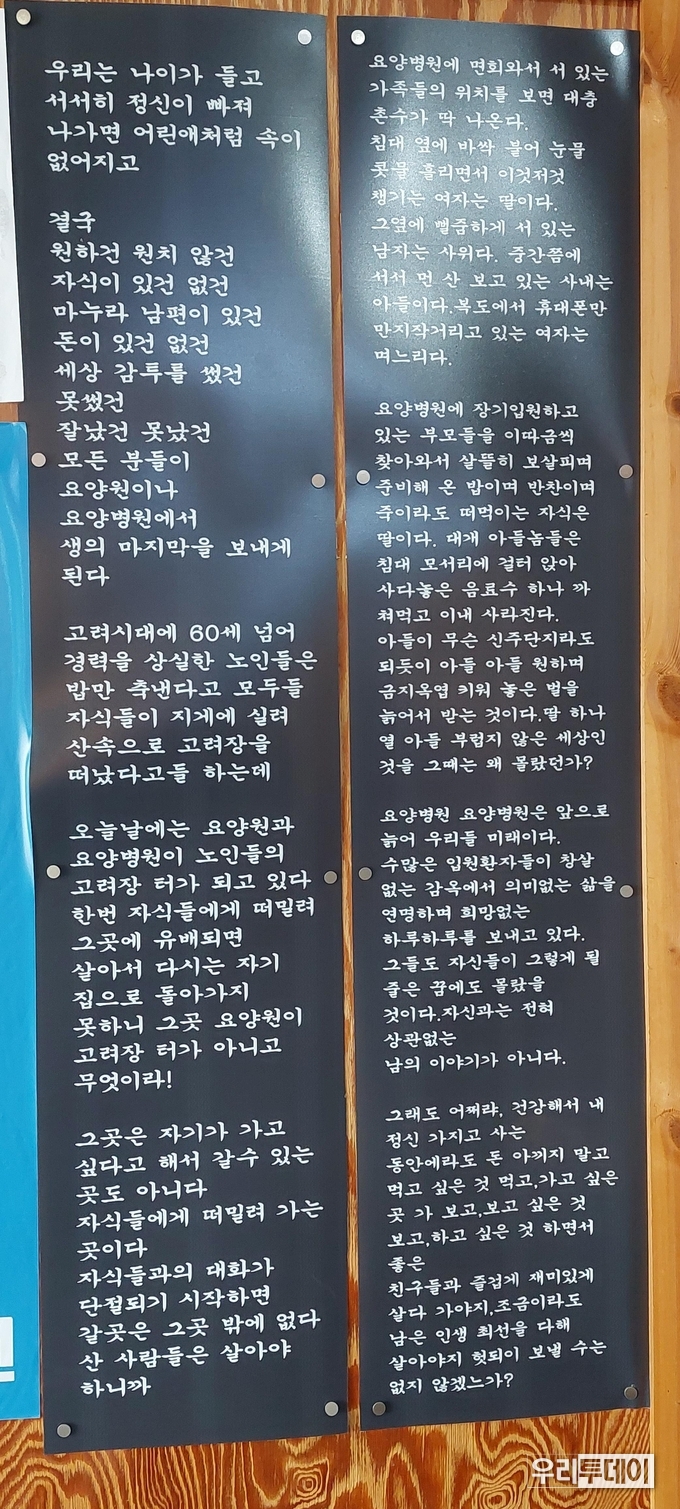 우리는 나이가 들고
서서히 정신이 빠져
나가면 어린애처럼 속이
없어지고
결국
원하건 원치 않건
자식이 있건 없건
마누라 남편이 있건
돈이 있건 없건
세상 감투를 썼건
못썼건
잘났건 못났건
모든 분들이
요양원이나
요양병원에서
생의 마지막을 보내게
된다
고려시대에 60세 넘어
경력을 상실한 노인들은
밥만 축낸다고 모두들
자식들이 지게에 실려
산속으로 고려장을
떠났다고들 하는데
오늘날에는 요양원과
요양병원이 노인들의
고려장 터가 되고 있다
한번 자식들에게 떠밀려
그곳에 유배되면
살아서 다시는 자기
집으로 돌아가지
못하니 그곳 요양원이
고려장 터가 아니고
무엇이라!
그곳은 자기가 가고
싶다고 해서 갈수 있는
곳도 아니다
자식들에게 떠밀려 가는
곳이다
자식들과의 대화가
단절되기 시작하면
갈곳은 그곳 밖에 없다
산 사람들은 살아야
하니까
요양병원에 면회와서 서 있는
가족들의 위치를 보면 대충
촌수가 딱 나온다.
침대 옆에 바싹 붙어 눈물
콧물 흘리면서 이것저것
챙기는 여자는 딸이다.
그옆에 뻘줌하게 서 있는
남자는 사위다. 중간쯤에
서서 먼 산 보고 있는 사내는
아들이다.복도에서 휴대폰만
만지작거리고 있는 여자는
며느리다.
요양병원에 장기입원하고
있는 부모들을 이따금씩
찾아와서 살뜰히 보살피며
준비해 온 밥이며 반찬이며
죽이라도 떠먹이는 자식은
딸이다. 대개 아들놈들은
침대 모서리에 걸터 앉아
사다놓은 음료수 하나 까
쳐먹고 이내 사라진다.
아들이 무슨 신주단지라도
되듯이 아들 아들 원하며
금지옥엽 키워 놓은 벌을
늙어서 받는 것이다.딸 하나
열 아들 부럽지 않은 세상인
것을 그때는 왜 몰랐던가?
요양병원 요양병원은 앞으로
늙어 우리들 미래이다.
수많은 입원환자들이 창살
없는 감옥에서 의미없는 삶을
연명하며 희망없는
하루하루를 보내고 있다.
그들도 자신들이 그렇게 될
줄은 꿈에도 몰랐을
것이다.자신과는 전혀
상관없는
남의 이야기가 아니다.
그래도 어쩌랴, 건강해서 내
정신 가지고 사는
동안에라도 돈 아끼지 말고
먹고 싶은 것 먹고,가고 싶은
곳 가 보고,보고 싶은 것
보고,하고 싶은 것 하면서
좋은
친구들과 즐겁게 재미있게
살다 가야지,조금이라도
남은 인생 최선을 다해
살아야지 헛되이 보낼 수는
없지 않겠느가?
우리투데이